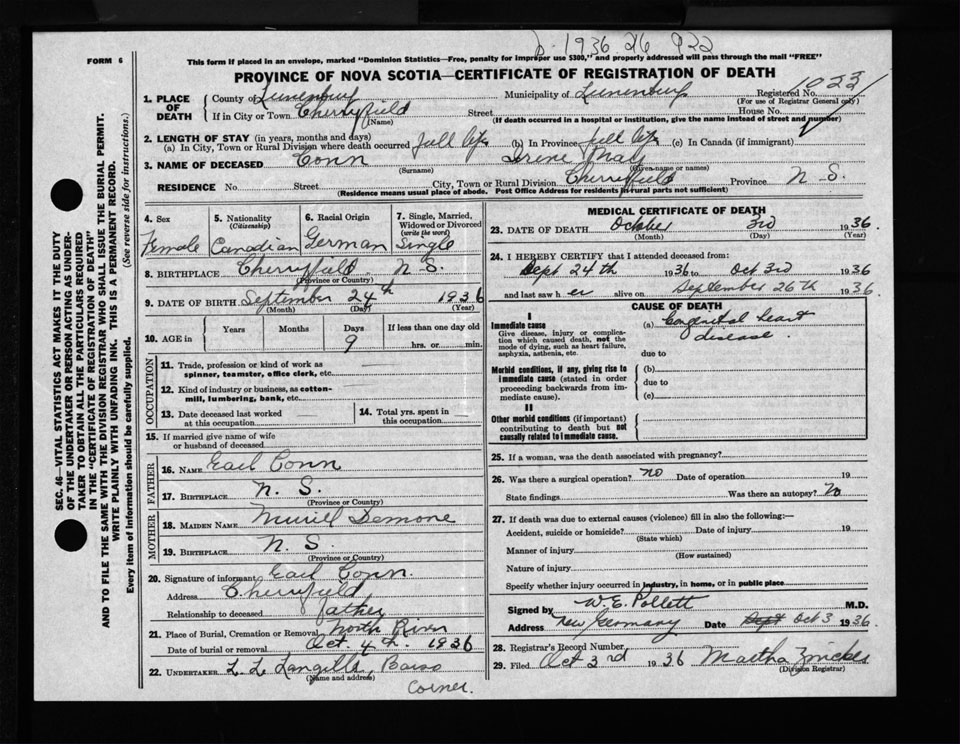 D. 1936. 26 922
FORM 6
This form if placed in an envelope, marked "Dominion Statistics—Free, penalty for improper use $300," and properly addressed will pass through the mail "FREE"
PROVINCE OF NOVA SCOTIA—CERTIFICATE OF REGISTRATION OF DEATH
1. PLACE OF DEATH
County of Lunenburg Municipality of Lunenburg Registered No. 1023
(For use of Registrar General only)
If in City or Town Cherryfield Street House No.
(Name) (If death occurred in a hospital or institution, give the name instead of street and number)
2. LENGTH OF STAY (in years, months and days)
(a) In City, Town or Rural Division where death occurred full life (b) In Province full life (c) In Canada (if immigrant)
3. NAME OF DECEASED Conn Irene May
(Surname) (Given name or names)
RESIDENCE No. Street City, Town or Rural Division Cherryfield Province N. S.
(Residence means usual place of abode. Post Office Address for residents in rural parts not sufficient)
4. Sex Female
5. Nationality (Citizenship) Canadian
6. Racial Origin German
7. Single, Married, Widowed or Divorced (write the word) Single
8. BIRTHPLACE Cherryfield N.S.
(Province or Country)
9. DATE OF BIRTH September 24th 1936
(Month) (Day) (Year)
10. AGE in Years Months Days 9 If less than one day old hrs. or min.
OCCUPATION
11. Trade, profession or kind of work as spinner, teamster, office clerk, etc.
12. Kind of industry or business, as cotton-mill, lumbering, bank, etc.
13. Date deceased last worked at this occupation
14. Total yrs. spent in this occupation
15. If married give name of wife or husband of deceased
FATHER
16. NAME Earl Conn
17. BIRTHPLACE N. S.
(Province or Country)
MOTHER
18. MAIDEN NAME Muriel Demone
19. BIRTHPLACE N. S.
(Province or Country)
20. Signature of informant Earl Conn.
Address Cherryfield
Relationship to deceased father
21. Place of Burial, Cremation or Removal North River
Date of burial or removal Oct 4th. 1936
22. UNDERTAKER L. L. Langille, Barss Corner.
(Name and address)
MEDICAL CERTIFICATE OF DEATH
23. DATE OF DEATH October 3rd 1936
(Month) (Day) (Year)
24. I HEREBY CERTIFY that I attended deceased from:
Sept 24th 1936 to Oct 3rd 1936
and last saw her alive on September 26th 1936.
CAUSE OF DEATH
I
Immediate cause
Give disease, injury or complication which caused death, not the mode of dying, such as heart failure, asphyxia, asthenia, etc.
(a) Congenital heart disease.
due to
Morbid conditions, if any, giving rise to immediate cause (stated in order proceeding backwards from immediate cause).
(b)
due to
(c)
II
Other morbid conditions (if important) contributing to death but not causally related to immediate cause.
25. If a woman, was the death associated with pregnancy?
26. Was there a surgical operation? no Date of operation 19
State findings Was there an autopsy? No
27. If death was due to external causes (violence) fill in also the following:—
Accident, suicide or homicide? Date of injury 19
(State which)
Manner of injury
(How sustained)
Nature of injury
Specify whether injury occurred in industry, in home, or in public place
Signed by W. E. Pollett M.D.
Address New Germany Date Sept Oct 3 1936.
28. Registrar's Record Number
29. Filed Oct 3rd 1936 Martha Zwicker
(Division Registrar)
SEC. 46—VITAL STATISTICS ACT MAKES IT THE DUTY
OF THE UNDERTAKER OR PERSON ACTING AS UNDER-
TAKER TO OBTAIN ALL THE PARTICULARS REQUIRED
IN THE "CERTIFICATE OF REGISTRATION OF DEATH"
AND TO FILE THE SAME WITH THE DIVISION REGISTRAR WHO SHALL ISSUE THE BURIAL PERMIT.
WRITE PLAINLY WITH UNFADING INK. THIS IS A PERMANENT RECORD.
Every item of information should be carefully supplied. (See reverse side for instructions.)